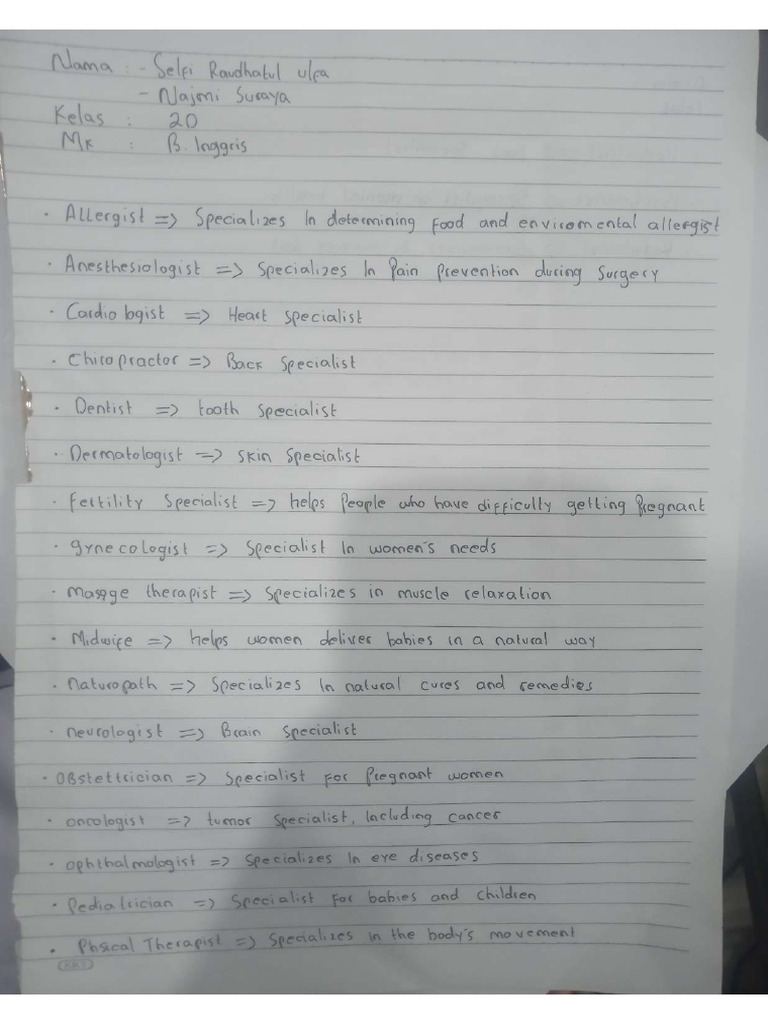 Nama : - Selfi Raudhatul ulfa
- Najmi Suraya
Kelas : 20
Mk : B. Inggris
· Allergist => Specializes In determining food and enviromental allergist
· Anesthesiologist => Specializes In Pain Prevention during Surgery
· Cardiologist => Heart specialist
· Chiropractor => Back Specialist
· Dentist => tooth specialist
· Dermatologist => skin specialist
· fertility Specialist => helps People who have difficully getting Pregnant
· gynecologist => Specialist In women's needs
· massge therapist => Specializes in muscle relaxation
· Midwife => helps women deliver babies in a natural way
· naturopath => Specializes In natural cures and remedies
· neurologist => Brain Specialist
· Obstettrician => Specialist for Pregnant women
· oncologist => tumor Specialist, Including cancer
· ophthalmologist => Specializes In eye diseases
· Pediatrician => Specialist For babies and Children
· Phsical Therapist => Specializes in the body's movement